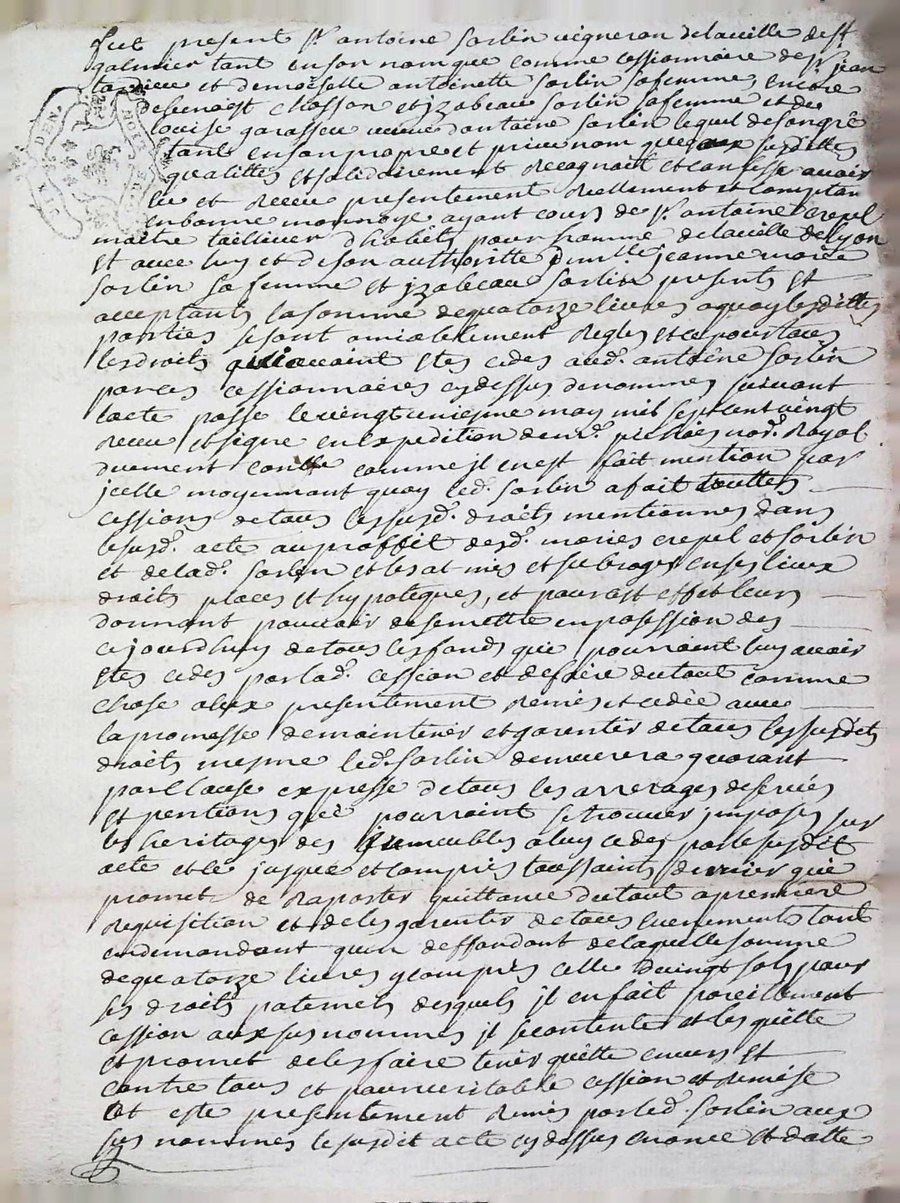 fut present Sr antoine Sorlin vigneron delaville de St
galmier tant en son nom que comme cessionnaire de Sr jean
tardieu et demoiselle antoinette Sorlin sa femme, encore
de benoist Chasson et jzabeau Sorlin sa femme et de
louise garasseu veuve dantoine Sorlin lequel de son gré
tant en son propre et privé nom que aux susdittes
qualittes et solidairement recognait et confesse avoir
eu et receu presentement reellement et comptan
en bonne monnoye ayant cours de Sr antoine Crepel
maitre tailleur dhabits pour homme delaville de lyon
et avec luy et de son authoritte demlle jeanne marie
Sorlin sa femme et jzabeau Sorlin presents et
acceptants la somme de quatorze livres a quoy lesdittes
parties se sont amiablement regles et ce pour tous
les droits qui avaint etes cedes audt. antoine Sorlin
par ces cessionnaires cy dessus denommes suivant
lacte passe le vingt uniesme may mil sept cent vingt
receu et signe en expedition de mt. not. Royal
duement contlle comme jl en est fait mention par
jcelle moyennant quoy led. Sorlin a fait touttes
cessions de tous les susd. droits mentionnes dans
le susd. acte au proffit desd. maries crepel et Sorlin
et de lad. Sorlin et les at mis et subroges en ses lieux
droits places et hypoteques, et pour cest effet leurs
donnant pouvoir de se mettre en posession des
cejourdhuy de tous les fonds que pourroint luy avoir
etes cedes par lad. cession et de faire du tout comme
chose a eux presentement remis et cedée avec
la promesse de maintenir et garentir de tous les susdits
droits mesme led. Sorlin demeurera guarant
par clause expresse de tous les arrerages de servis
et pentions qui pourroint se trouver jmposes sur
les heritages des jmmeubles a luy cedes par le susdit
acte et ce jusque et compris toussaints dernier que
promet de raporter quittance du tout a premiere
requisition et de les garentir de tous evenements tant
en demandant quen deffandant de laquelle somme
de quatorze livres y compris celle de vingt sols pour
ses droits paternels desquels jl en fait pareillement
cession aux sus nommes jl se contente et les quitte
et promet de les faire tenir quitte envers et
contre tous et pour veritable cession et remise
at este presentement remis par led. Sorlin aux
sus nommes le susdit acte cy dessus enoncé et datte